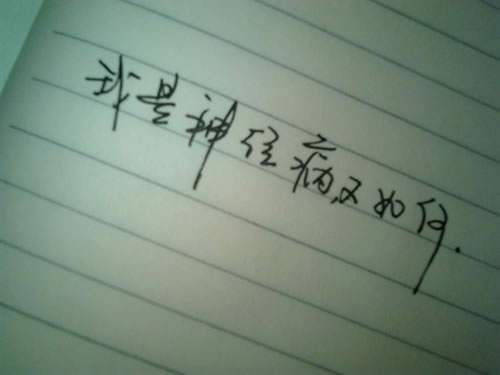 我是神经病,又如何.